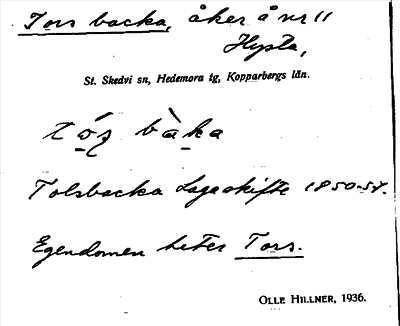 Tors backa, åker å nr 11
Hysta,
St. Skedvi sn, Hedemora tg, Kopparbergs län.
Tolsbacka Laga skifte 1850-54.
Egendomen heter Tors.
OLLE HILLNER, 1936.